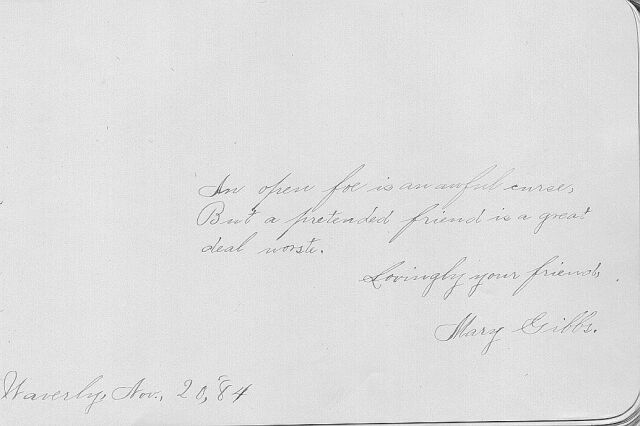 An open foe is an awful curse,
But a pretended friend is a great
deal worste.
Lovingly your friend,
Mary Gibbs.
Waverly, Nov., 20, '84